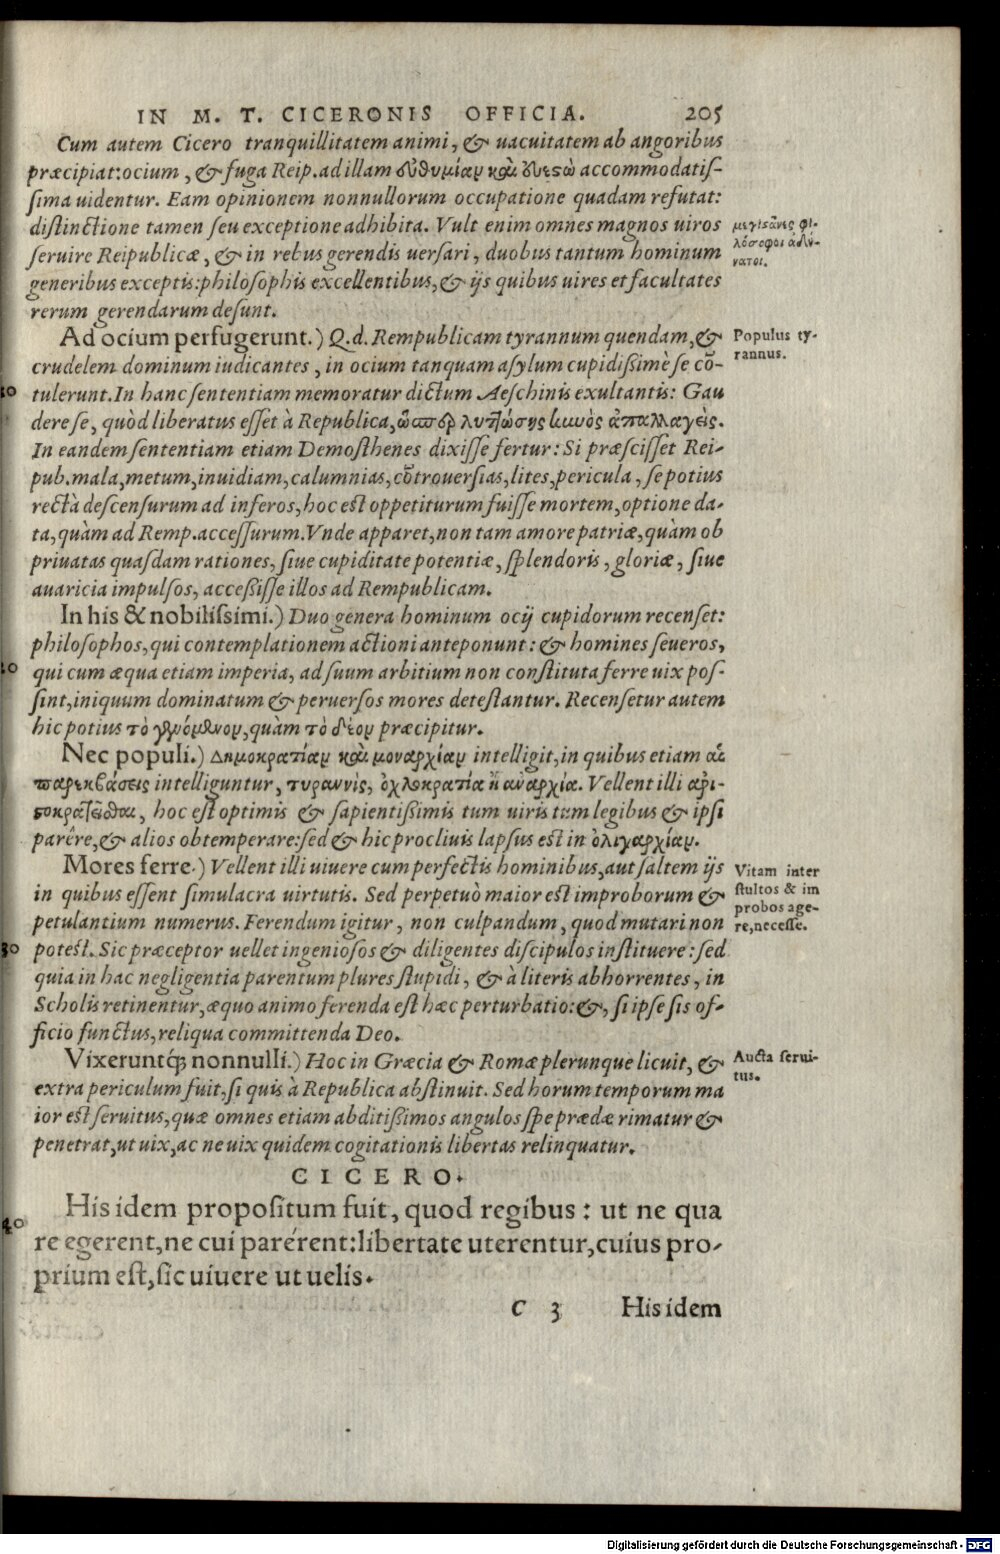 IN M. T. CICERONIS OFFICIA. 205
Cum autem Cicero tranquillitatem animi, & uacuitatem ab angoribus
præcipiat: ocium, & fuga Reip. ad illam εὐθυμίαν καὶ accommodatis-
sima uidentur. Eam opinionem nonnullorum occupatione quadam refutat:
distinctione tamen seu exceptione adhibita. Vult enim omnes magnos uiros
seruire Reipublicæ, & in rebus gerendis uersari, duobus tantum hominum
generibus exceptis: philosophis excellentibus, & ijs quibus uires et facultates
rerum gerendarum desunt.
Ad ocium perfugerunt.) Q.d. Rempublicam tyrannum quendam, &
crudelem dominum iudicantes, in ocium tanquam asylum cupidißimè se cō-
tulerunt. In hanc sententiam memoratur dictum Aeschinis exultantis: Gau
dere se, quòd liberatus esset à Republica, ὥσπερ λυττώσης κυνὸς ἀπαλλαγεὶς.
In eandem sententiam etiam Demosthenes dixisse fertur: Si præscisset Rei-
pub. mala, metum, inuidiam, calumnias, cōtrouersias, lites, pericula, se potius
rectà descensurum ad inferos, hoc est oppetiturum fuisse mortem, optione da-
ta, quàm ad Remp. accessurum. Vnde apparet, non tam amore patriæ, quàm ob
priuatas quasdam rationes, siue cupiditate potentiæ, splendoris, gloriæ, siue
auaricia impulsos, acceßisse illos ad Rempublicam.
In his & nobilissimi.) Duo genera hominum ocij cupidorum recenset:
philosophos, qui contemplationem actioni anteponunt: & homines seueros,
qui cum æqua etiam imperia, ad suum arbitium non constituta ferre uix pos-
sint, iniquum dominatum & peruersos mores detestantur. Recensetur autem
hic potius τὸ γινόμενον, quàm τὸ δέον præcipitur.
Nec populi.) Δημοκρατίαν καὶ μοναρχίαν intelligit, in quibus etiam αἱ
παρεκβάσεις intelliguntur, τυραννὶς, ὀχλοκρατία ἢ ἀναρχία. Vellent illi ἀρι-
στοκρατεῖσθαι, hoc est optimis & sapientißimis tum uiris tum legibus & ipsi
parêre, & alios obtemperare: sed & hic procliuis lapsus est in ὀλιγαρχίαν.
Mores ferre.) Vellent illi uiuere cum perfectis hominibus, aut saltem ijs
in quibus essent simulacra uirtutis. Sed perpetuò maior est improborum &
petulantium numerus. Ferendum igitur, non culpandum, quod mutari non
potest. Sic præceptor uellet ingeniosos & diligentes discipulos instituere: sed
quia in hac negligentia parentum plures stupidi, & à literis abhorrentes, in
Scholis retinentur, æquo animo ferenda est hæc perturbatio: &, si ipse sis of-
ficio functus, reliqua committenda Deo.
Vixeruntq́; nonnulli.) Hoc in Græcia & Romæ plerunque licuit, &
extra periculum fuit, si quis à Republica abstinuit. Sed horum temporum ma
ior est seruitus, quæ omnes etiam abditißimos angulos spe prædæ rimatur &
penetrat, ut uix, ac ne uix quidem cogitationis libertas relinquatur.
CICERO.
His idem propositum fuit, quod regibus: ut ne qua
re egerent, ne cui parérent: libertate uterentur, cuius pro-
prium est, sic uiuere ut uelis.
C 3 His idem
φι-
λόσοφοι ἀδύ-
νατοι.
Populus ty-
rannus.
Vitam inter
stultos & im
probos age-
re, necesse.
Aucta serui-
tus.
30
40
Digitalisierung gefördert durch die Deutsche Forschungsgemeinschaft - DFG